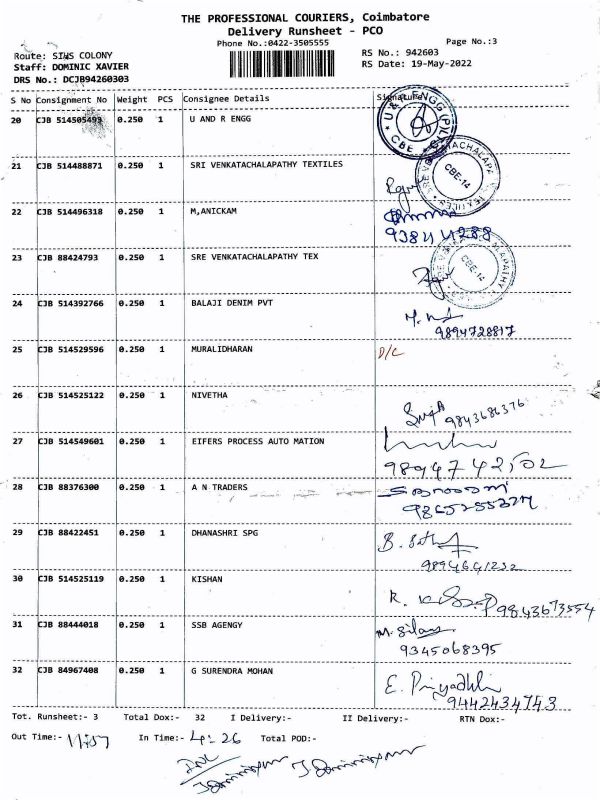 THE PROFESSIONAL COURIERS, Coimbatore
Delivery Runsheet - PCO
Phone No.:0422-3505555
Page No.:3
Route: SIHS COLONY
RS No.: 942603
Staff: DOMINIC XAVIER
RS Date: 19-May-2022
DRS No.: DCJB94260303
S No Consignment No Weight PCS Consignee Details Signature
20 CJB 514505499 0.250 1 U AND R ENGG
21 CJB 514488871 0.250 1 SRI VENKATACHALAPATHY TEXTILES
CBE-14
22 CJB 514496318 0.250 1 M,ANICKAM
23 CJB 88424793 0.250 1 SRE VENKATACHALAPATHY TEX
CBE-14
24 CJB 514392766 0.250 1 BALAJI DENIM PVT
9894728817
25 CJB 514529596 0.250 1 MURALIDHARAN D/C
26 CJB 514525122 0.250 1 NIVETHA
9843686376
27 CJB 514549601 0.250 1 EIFERS PROCESS AUTO MATION
28 CJB 88376300 0.250 1 A N TRADERS
29 CJB 88422451 0.250 1 DHANASHRI SPG
30 CJB 514525119 0.250 1 KISHAN
9843673554
31 CJB 88444018 0.250 1 SSB AGENGY
9345068395
32 CJB 84967408 0.250 1 G SURENDRA MOHAN
9442434743
Tot. Runsheet:- 3 Total Dox:- 32 I Delivery:- II Delivery:- RTN Dox:-
Out Time:- In Time:- 4:26 Total POD:-